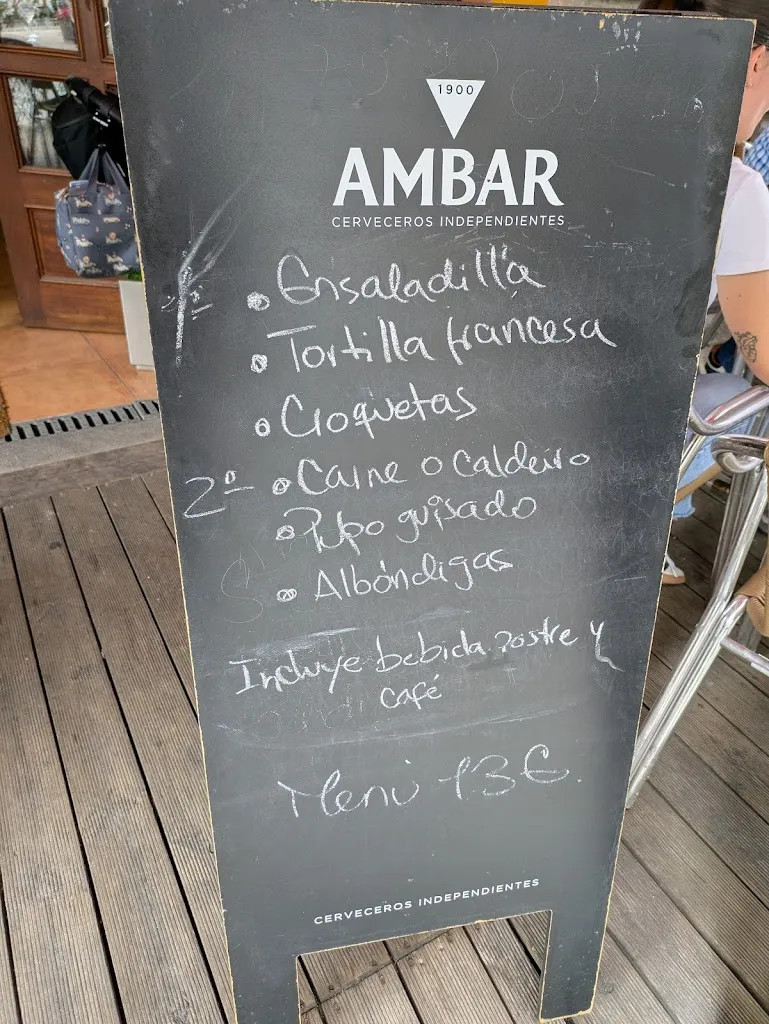 1900
AMBAR
CERVECEROS INDEPENDIENTES
1º Ensaladilla
Tortilla francesa
Croquetas
2º Carne o caldeiro
Pulpo guisado
Albóndigas
Incluye bebida. Postre y
café
Menú 13€.
CERVECEROS INDEPENDIENTES